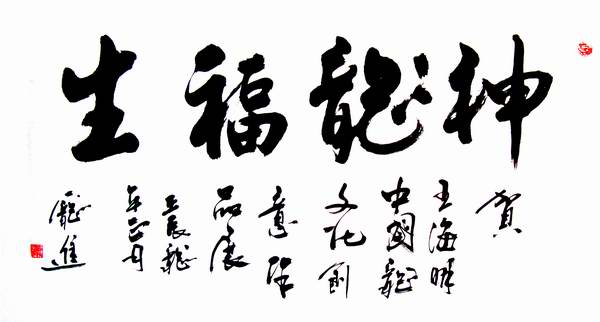 神龍福生
賀
王海
中國龍
文化創
意作
品展
壬辰龍
年正月
龐進